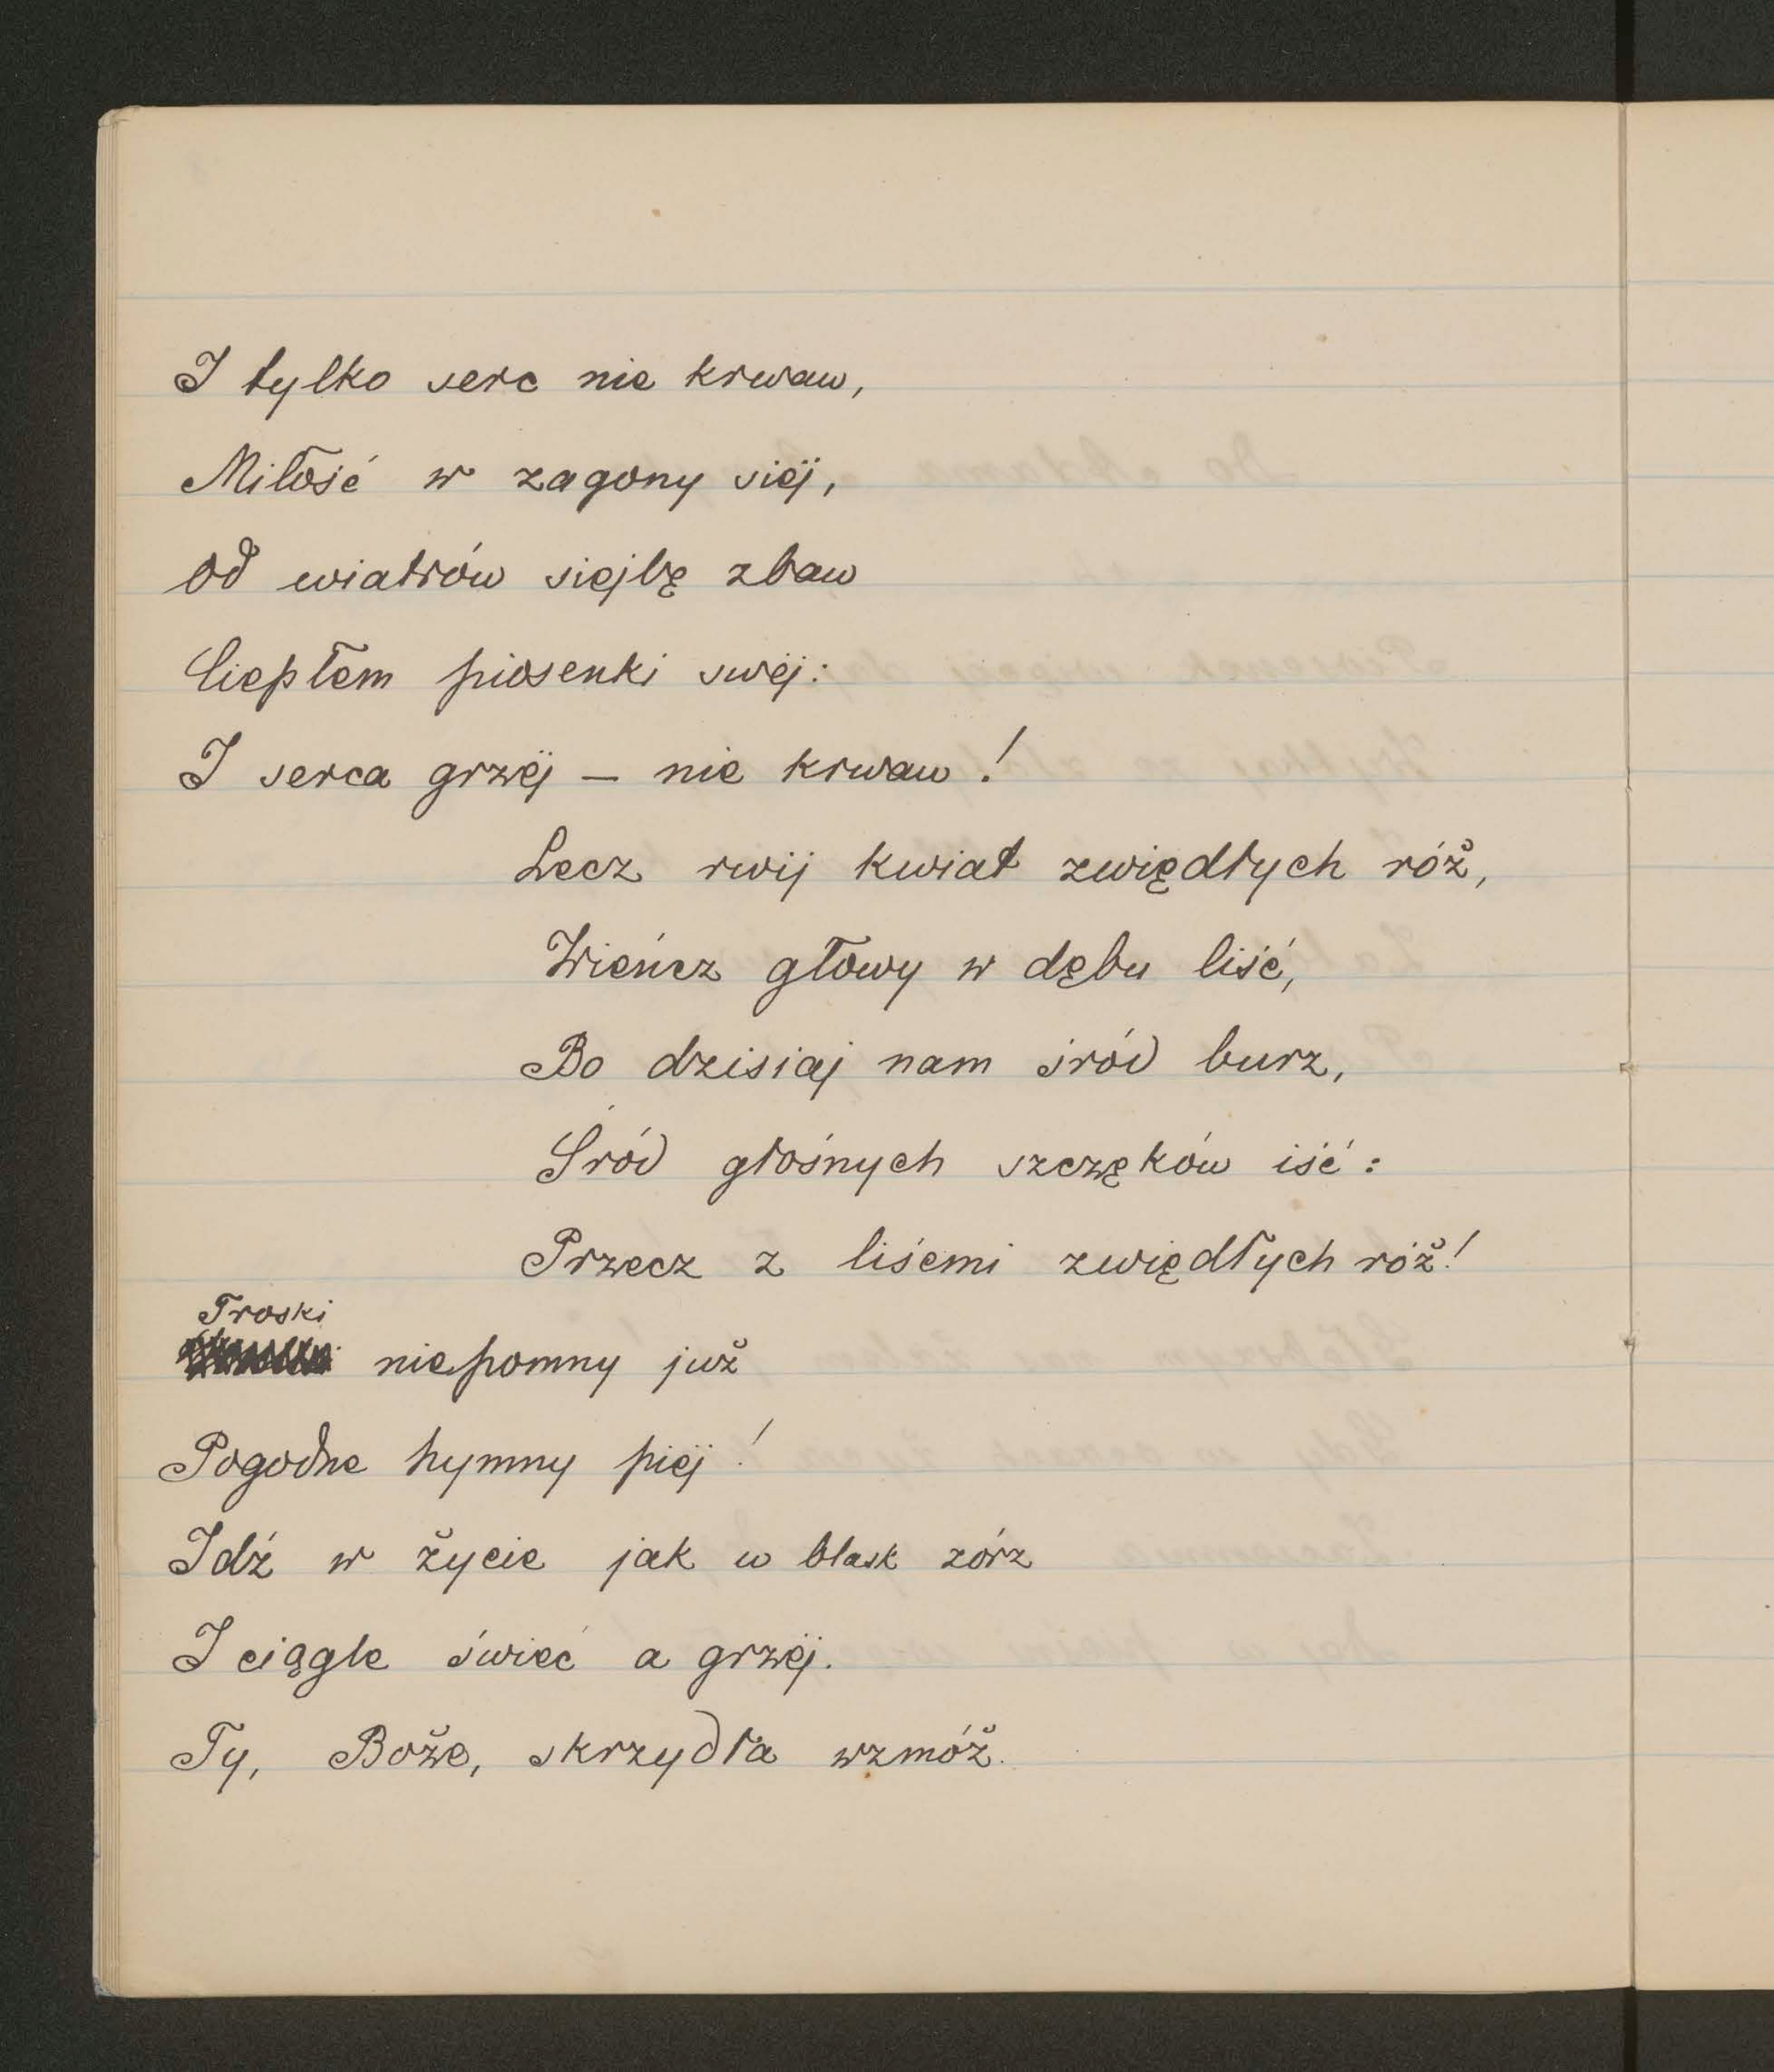 I tylko serc nie krwaw,
Miłość w zagony siéj,
Od wiatrów siejbę zbaw
Ciepłem piosenki swéj:
I serca grzéj — nie krwaw!
Lecz rwij kwiat zwiędłych róż,
Wieńcz głowy w dębu liść,
Bo dzisiaj nam śród burz,
Śród głośnych szczęków iść:
Przecz z liśćmi zwiędłych róż!
Troski
niepomny już
Pogodne hymny piéj!
Idź w życie jak w blask zórz
I ciągle świeć a grzéj.
Ty, Boże, skrzydła wzmóż.